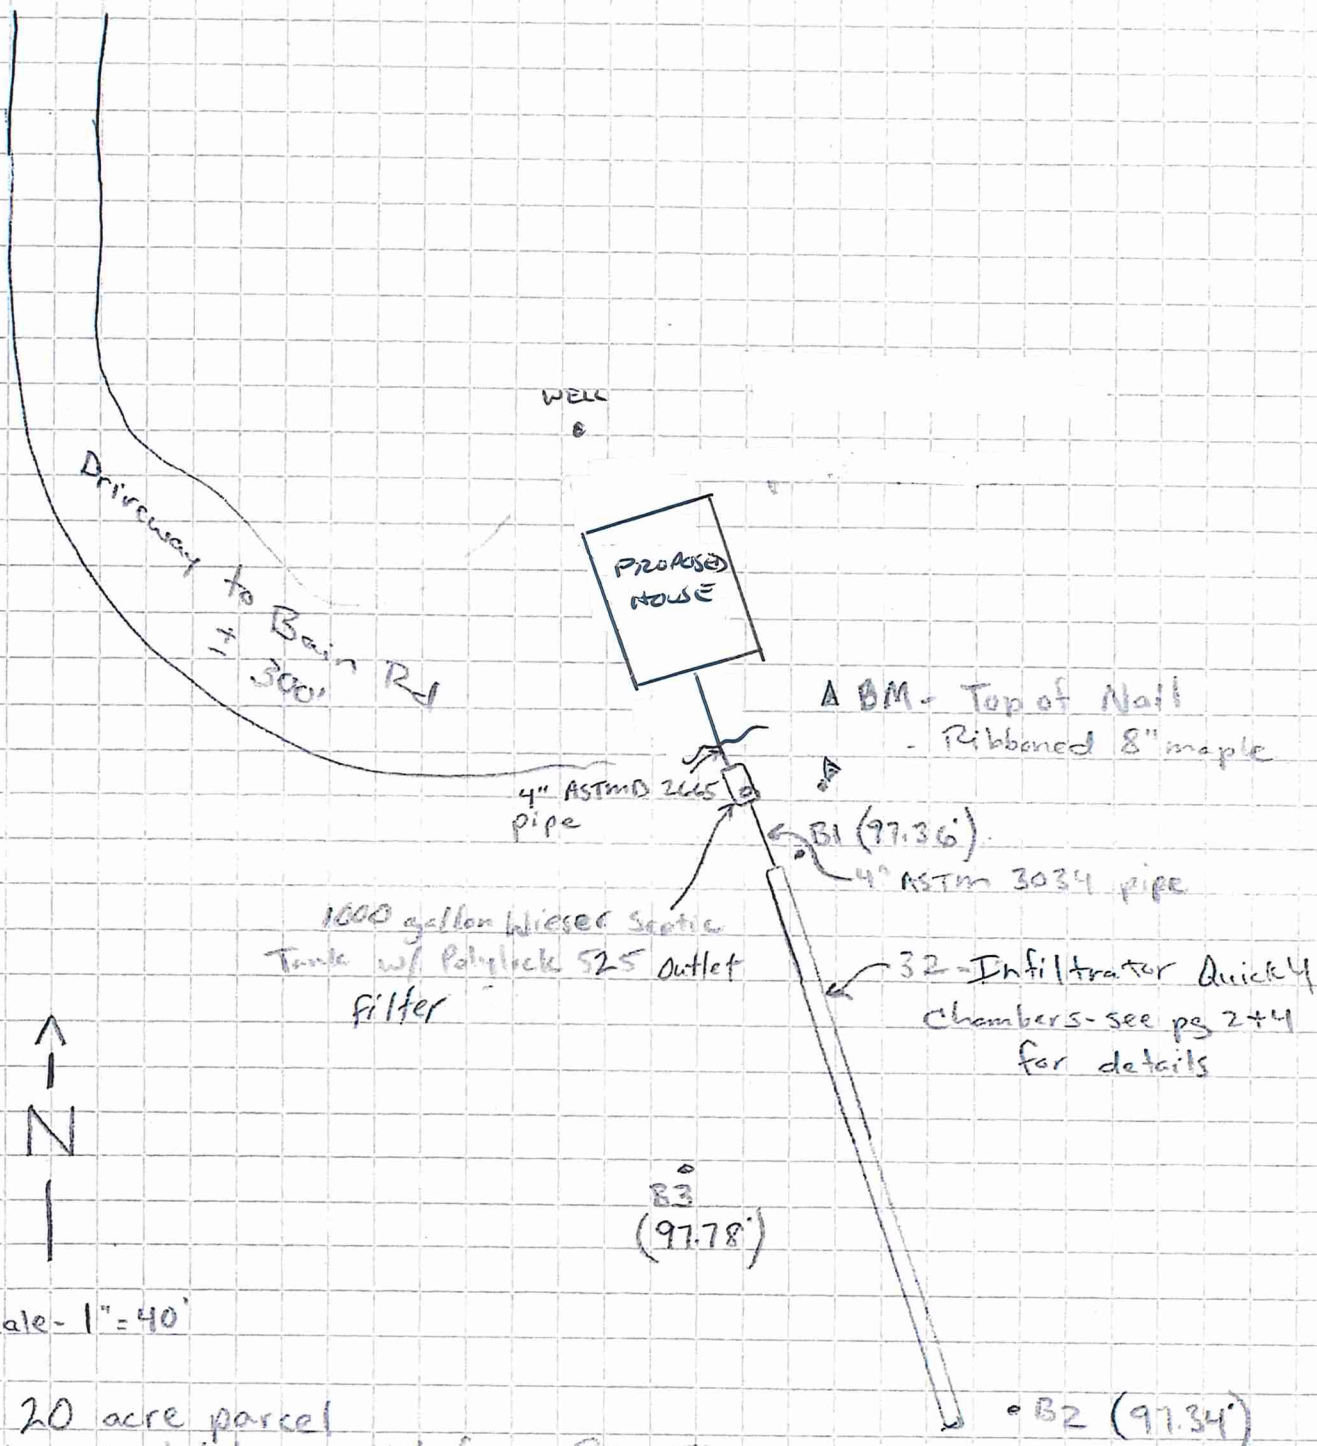 WELL
Driveway to Bain Rd
± 300'
PROPOSED
HOUSE
BM - Top of Nail
- Ribboned 8" maple
4" ASTMD 2665
pipe
B1 (97.36')
4" ASTM 3034 pipe
1000 gallon Wieser Septic
Tank w/ Polylock 525 Outlet
filter
32 - Infiltrator Quick 4
Chambers - see pg 2+4
for details
N
B3
(97.78')
ale - 1" = 40'
20 acre parcel
B2 (97.34')